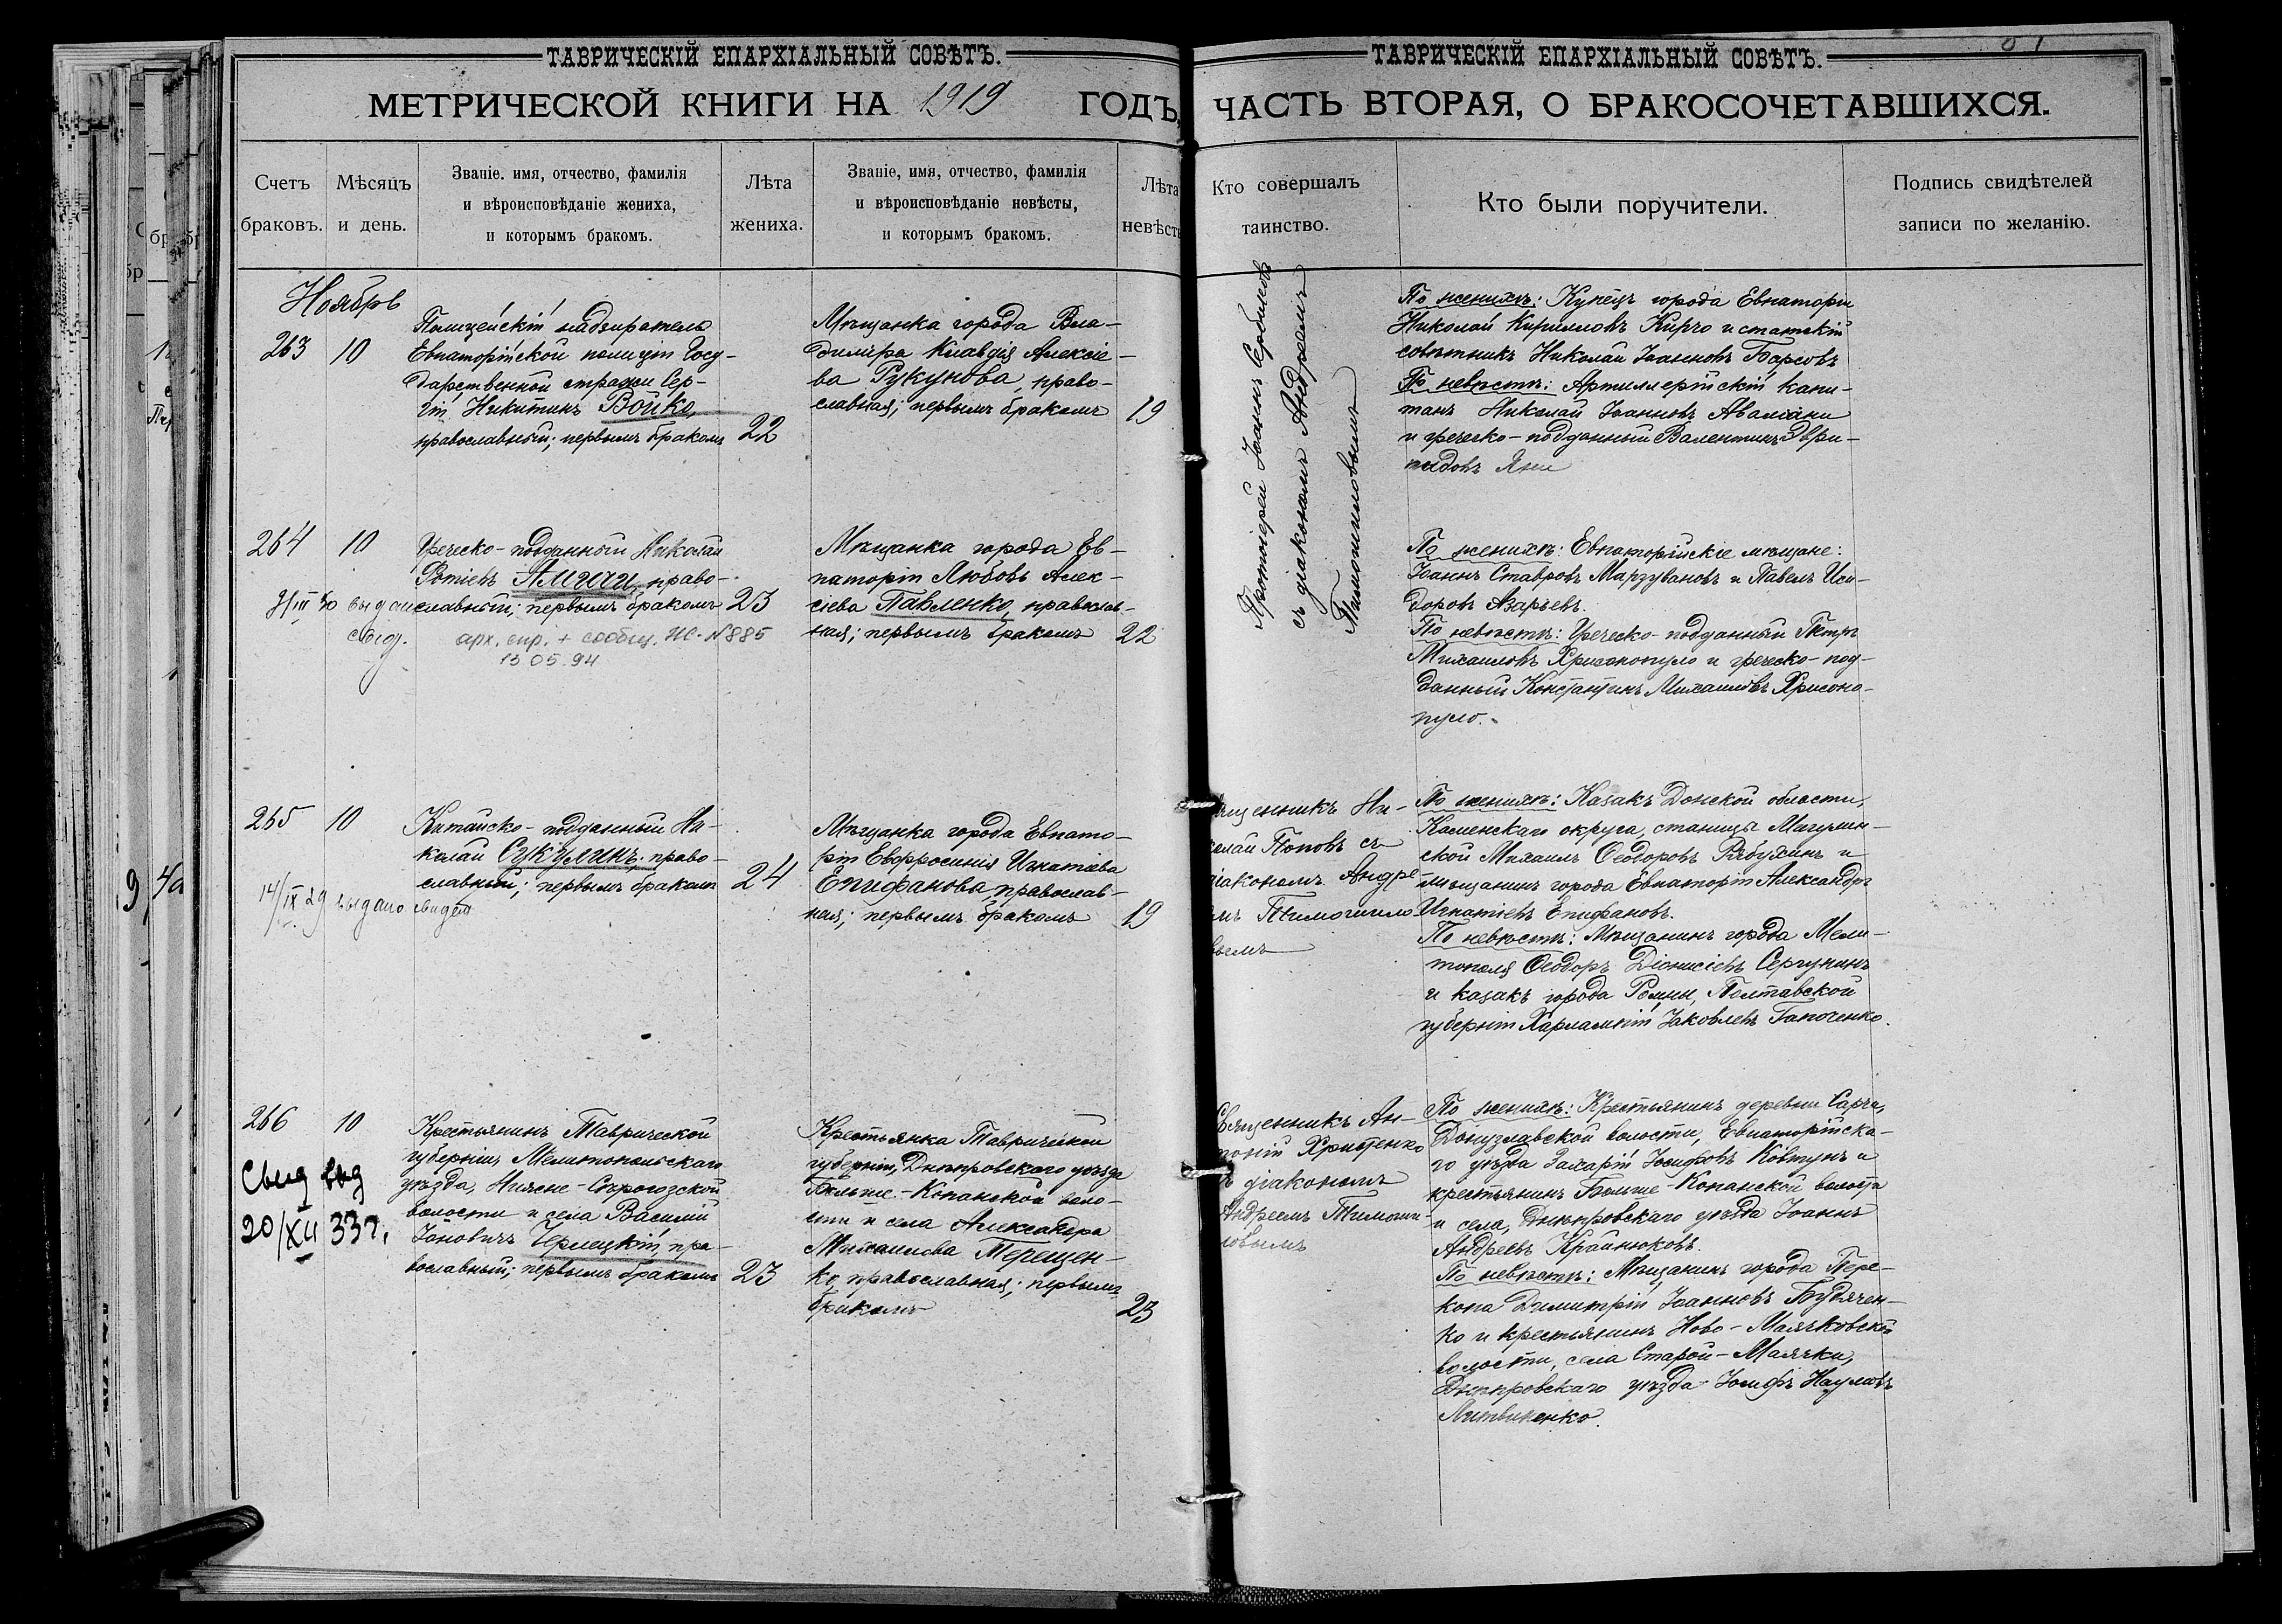 ТАВРИЧЕСКІЙ ЕПАРХІАЛЬНЫЙ СОВѢТЪ.
МЕТРИЧЕСКОЙ КНИГИ НА 1919 ГОДЪ,
Счетъ
браковъ.
Мѣсяцъ
и день.
Званіе. имя, отчество, фамилія
и вѣроисповѣданіе жениха,
и которымъ бракомъ.
Лѣта
жениха.
Званіе, имя, отчество, фамилія
и вѣроисповѣданіе невѣсты,
и которымъ бракомъ.
Лѣта
невѣсты
ТАВРИЧЕСКІЙ ЕПАРХІАЛЬНЫЙ СОВѢТЪ.
ЧАСТЬ ВТОРАЯ, О БРАКОСОЧЕТАВШИХСЯ.
Кто совершалъ
таинство.
Кто были поручители.
Подпись свидѣтелей
записи по желанію.
Ноябрь
263
10
Полицейскій надзиратель
Евпаторійской полиціи Госу-
дарственной стражи Сер-
гій Никитинъ Бойко,
православный; первымъ бракомъ
22
Мѣщанка города Вла-
диміра Клавдія Алексіе-
ва Рукунова, право-
славная; первымъ бракомъ
19
Протоіерей Іоаннъ
съ діакономъ Андреемъ
Тимошиловымъ
По женихѣ: Купецъ города Евпаторіи
Николай Кирилловъ Кирчо и статскій
совѣтникъ Николай Іоанновъ Барсовъ
По невѣстѣ: Артиллерійскій капи-
танъ Николай Іоанновъ Аваліани
и греческо-подданный Валентинъ Эври-
пидовъ Яни
264
10
Греческо-подданный Николай
Фотіевъ Амичи, право-
славный; первымъ бракомъ
23
выдан
свид.
арх. спр. + сообщ. №885
13.05.94
Мѣщанка города Ев-
паторіи Любовь Алек-
сіева Павленко, православ-
ная; первымъ бракомъ
22
По женихѣ: Евпаторійскіе мѣщане:
Іоаннъ Ставровъ Марзувановъ и Павелъ Иси-
доровъ Азарьевъ.
По невѣстѣ: Греческо-подданный Петръ
Михаиловъ Хрисонопуло и греческо-под-
данный Константинъ Михаиловъ Хрисоно-
пуло.
265
10
Китайско-подданный Ни-
колай Сукулинъ; право-
славный; первымъ бракомъ
24
14/IX 29 выдано свидет
Мѣщанка города Евпато-
ріи Евфросинія Игнатіева
Епифанова, православ-
ная; первымъ бракомъ
19
ященникъ Ни-
колай Поповъ съ
діакономъ Андре-
емъ Тимошило-
вымъ
По женихѣ: Казакъ Донской области,
Каменскаго округа, станицы Мигулин-
ской Михаилъ Ѳеодоровъ Рябухинъ и
мѣщанинъ города Евпаторіи Александръ
Игнатіевъ Епифановъ.
По невѣстѣ: Мѣщанинъ города Мели-
тополя Ѳеодоръ Діонисіевъ Сергунинъ
и казакъ города Ромны, Полтавской
губерніи Харлампій Іаковлевъ Гапоченко.
266
10
Свид выд
20/XII 33 г.
Крестьянинъ Таврической
губерніи, Мелитопольскаго
уѣзда, Нижне-Сѣрогозской
волости и села Василій
Іоновичъ Чернецкій, пра-
вославный; первымъ бракомъ
23
Крестьянка Таврической
губерніи, Днѣпровскаго уѣзда
Больше-Копанской воло-
сти и села Александра
Михаилова Терещен-
ко, православная; первымъ
бракомъ
23
Священникъ Ан-
тоній Христенко
съ діакономъ
Андреемъ Тимоши-
ловымъ
По женихѣ: Крестьянинъ деревни Сарча,
Донузлавской волости, Евпаторійска-
го уѣзда Захарій Іосифовъ Ковтунъ и
крестьянинъ Больше-Копанской волости
и села, Днѣпровскаго уѣзда Іоаннъ
Андреевъ Крайнюковъ.
По невѣстѣ: Мѣщанинъ города Пере-
копа Димитрій Іоанновъ Будячен-
ко и крестьянинъ Ново-Маячковской
волости, села Старой-Маячки,
Днѣпровскаго уѣзда Іосифъ Наумовъ
Литвиненко.